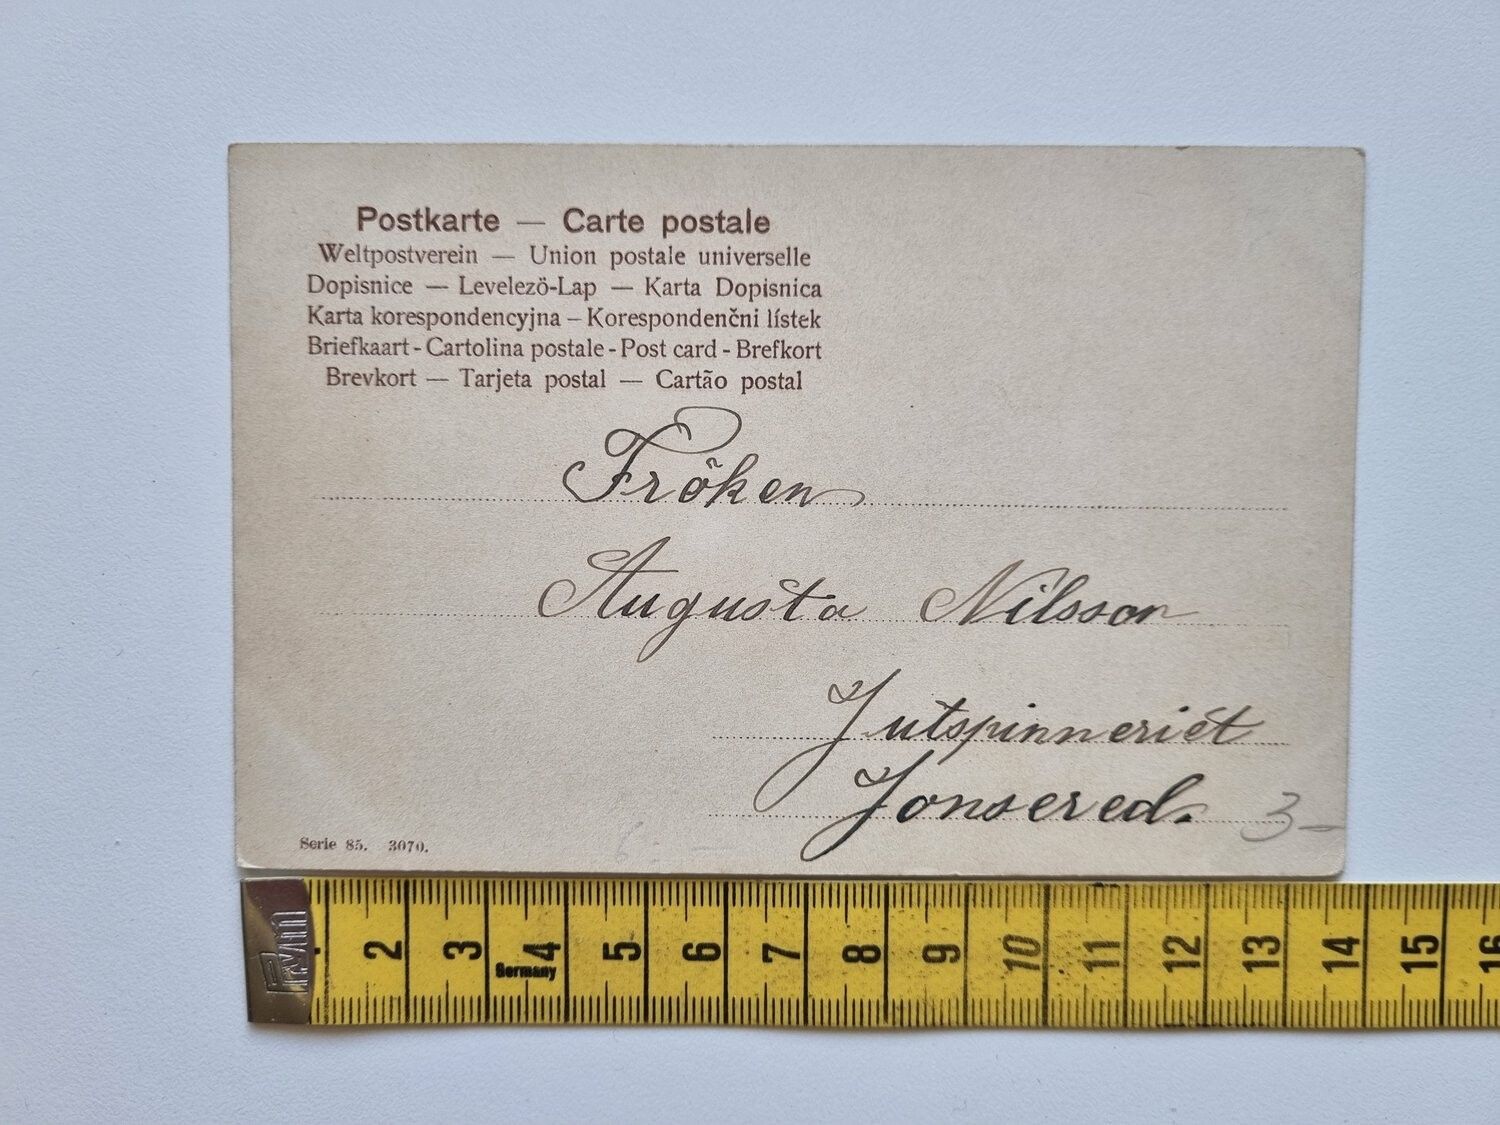 Postkarte — Carte postale
Weltpostverein — Union postale universelle
Dopisnice — Levelezö-Lap — Karta Dopisnica
Karta korespondencyjna – Korespondenčni lístek
Briefkaart - Cartolina postale - Post card - Brefkort
Brevkort — Tarjeta postal — Cartão postal
Fröken
Augusta Nilsson
Jutspinneriet
Jonsered.
3–
Serie 85. 3070.
2 3 4 5 6 7 8 9 10 11 12 13 14 15 16
Germany